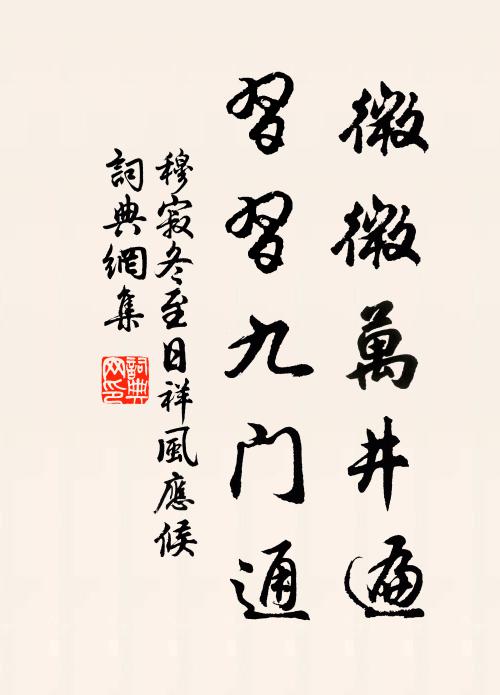 微微萬井遍
習習九门通
穆寂冬至日祥風應候
詞典網集
詞典
网印